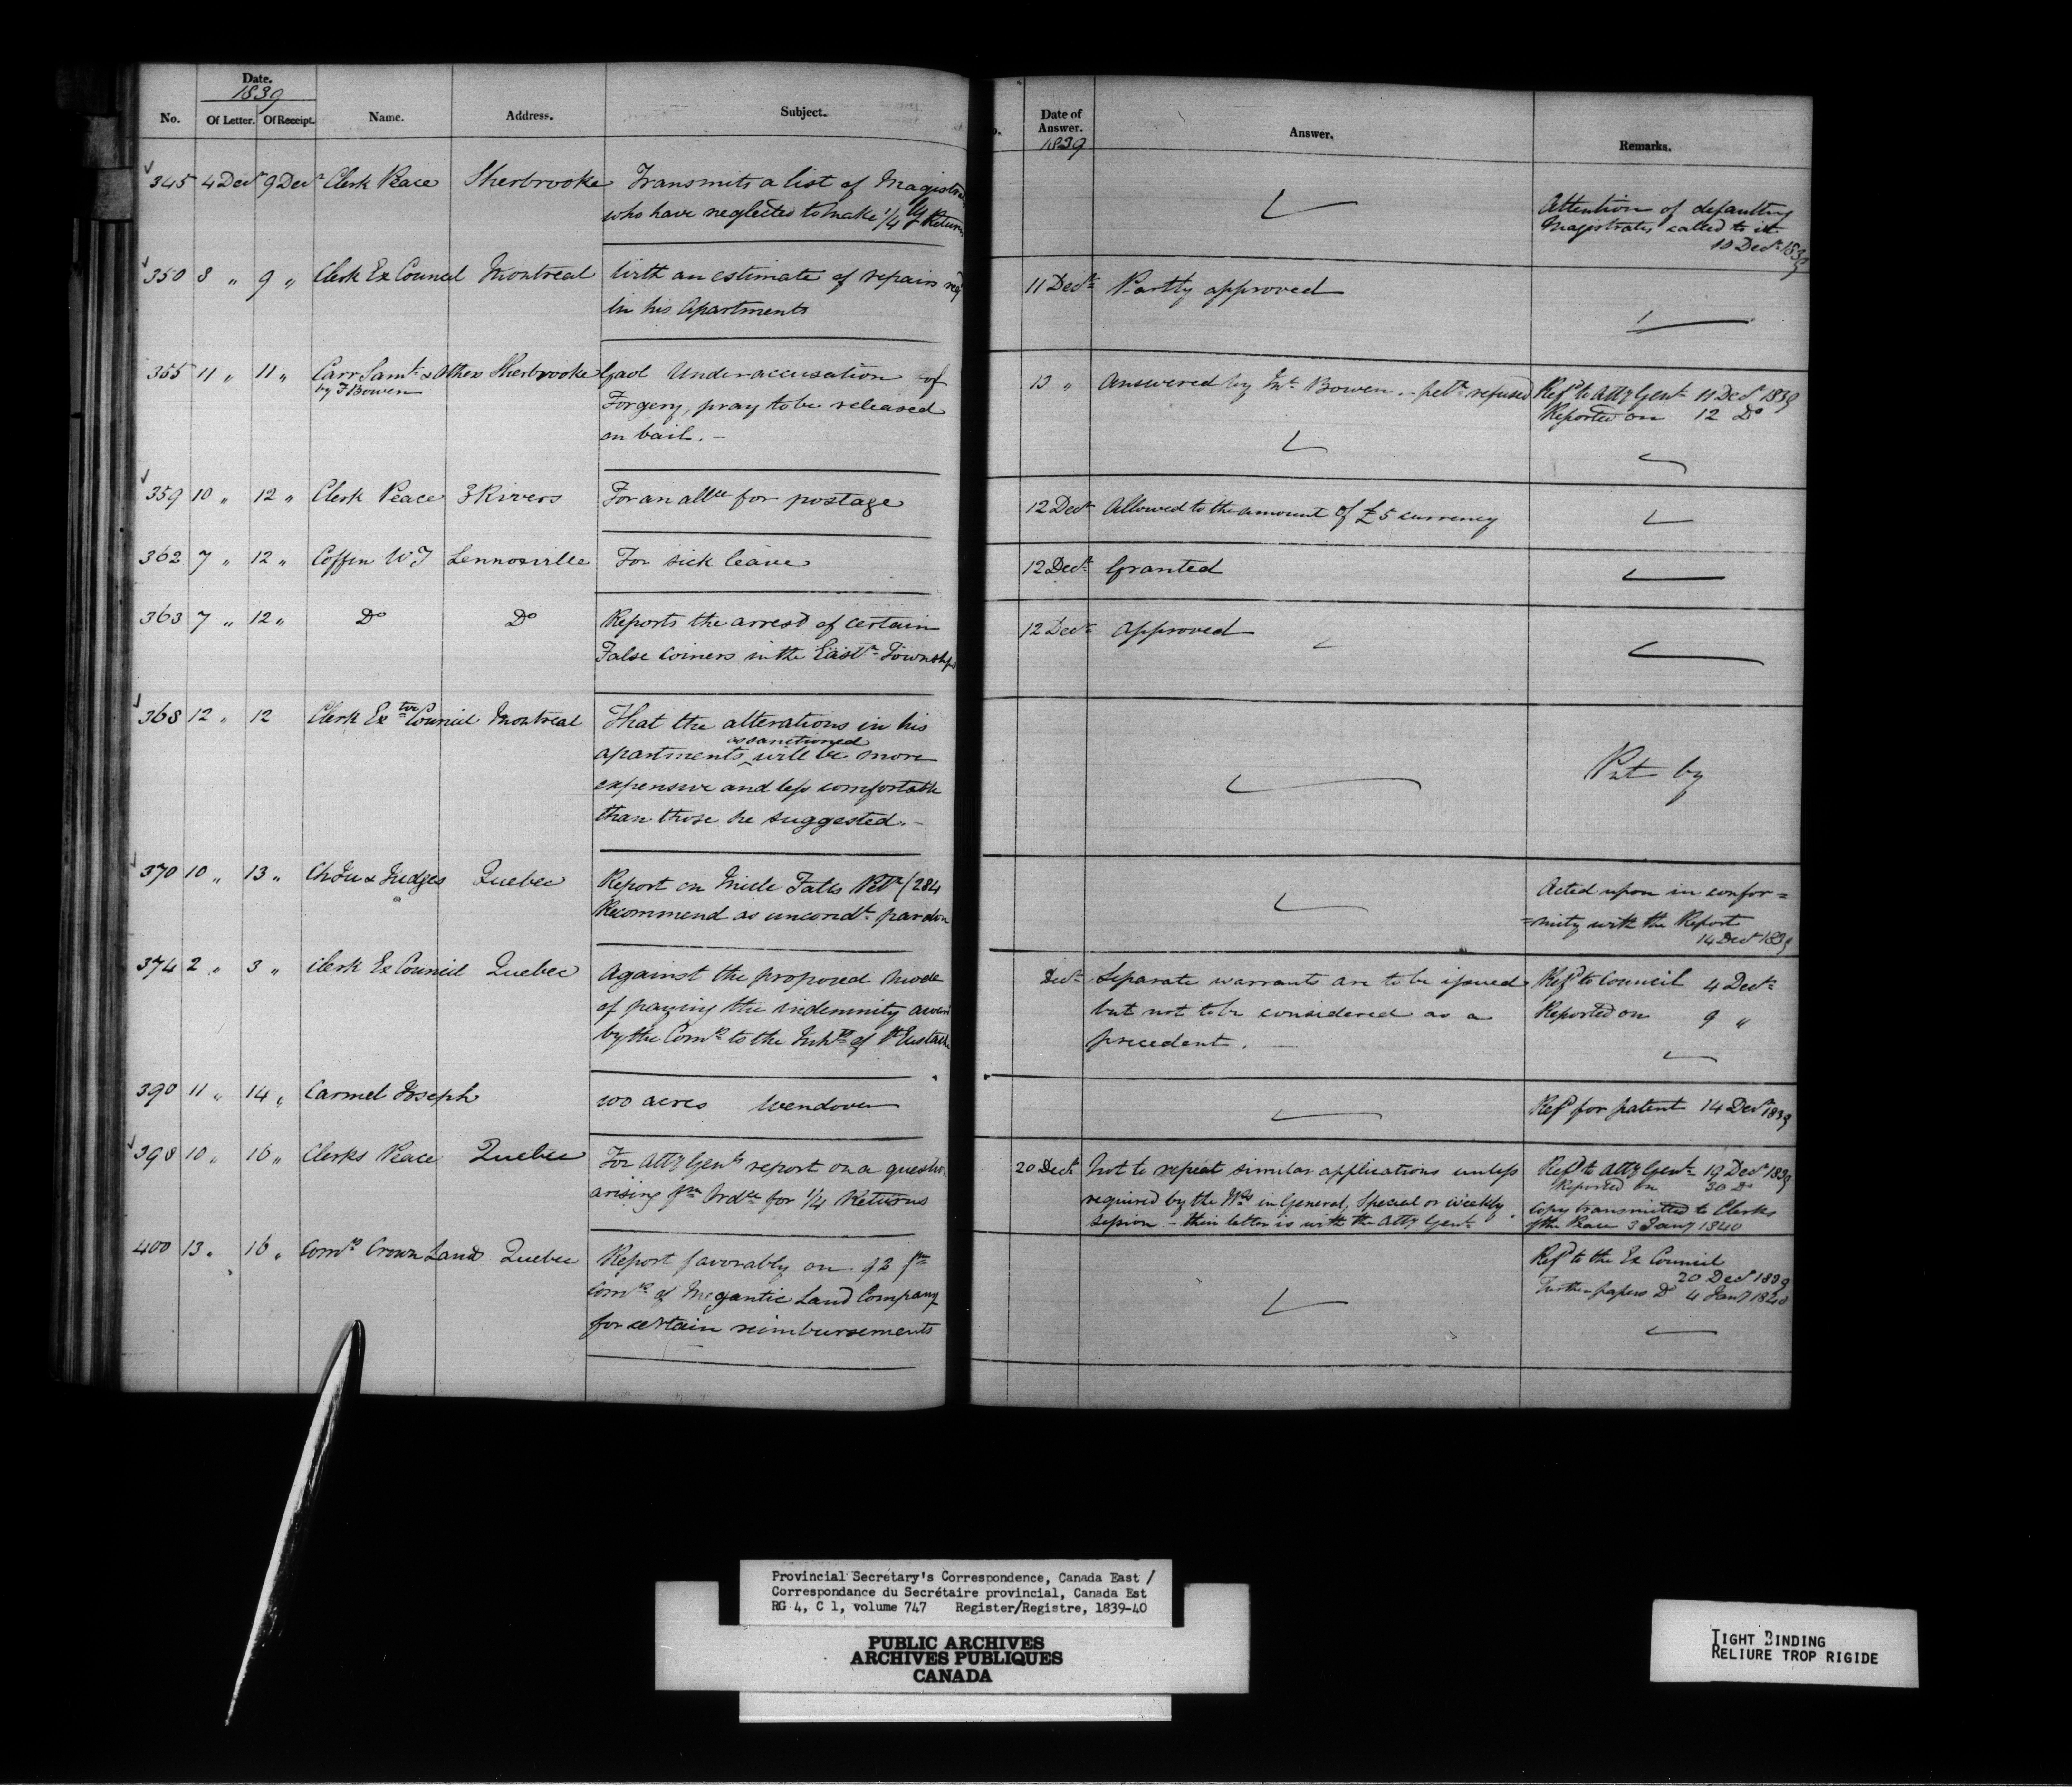 Date.
1839
No. Of Letter. Of Receipt. Name. Address. Subject.
Date of Answer. 1839 Answer. Remarks.
345 4 Decr 9 Decr Clerk Peace Sherbrooke Transmits a list of Magistrates
who have neglected to make 1/4ly Returns
Attention of defaulting
Magistrates called to it
10 Decr 1839
350 8 " 9 " Clerk Ex Council Montreal With an estimate of repairs
in his Apartments
11 Decr Partly approved
355 11 " 11 " Carr Saml & others Sherbrooke Gaol Under accusation of
by F Bowen
Forgery, pray to be released
on bail. –
13 " Answered by Mr Bowen – petn refused Refd to Atty Genl 11 Decr 1839
Reported on 12 Do
359 10 " 12 " Clerk Peace 3 Rivers For an allce for postage
12 Decr Allowed to the amount of £5 currency
362 7 " 12 " Coffin W J Lennoxville For sick leave
12 Decr Granted
363 7 " 12 " Do Do Reports the arrest of certain
False coiners in the Eastn Townships
12 Decr Approved
368 12 " 12 Clerk Extve Council Montreal That the alterations in his
as sanctioned
apartments ‸ will be more
expensive and less comfortable
than those he suggested. –
Put by
370 10 " 13 " Ch Ju & Judges Quebec Report on Petn /284
Recommend as uncondl pardon
Acted upon in confor=
=mity with the Report
14 Decr 1839
374 2 " 3 " Clerk Ex Council Quebec Against the proposed mode
of paying the indemnity
by the Comrs to the Inhts of St Eustache
Decr Separate warrants are to be issued
but not to be considered as a
precedent. –
Refd to Council 4 Decr
Reported on 9 "
390 11 " 14 " Carmel Joseph 100 acres Wendover
Refd for patent 14 Decr 1839
398 10 " 16 " Clerks Peace Quebec For Atty Genls report on a question
arising fm Ordce for 1/4 Returns
20 Decr Not to repeat similar applications unless
required by the in General, Special or Weekly
Session – their letter is with the Atty Genl
Refd to Atty Genl 19 Decr 1839
Reported on 30 Do
Copy transmitted to Clerks
of the Peace 3 Jany 1840
400 13 " 16 " Comr Crown Lands Quebec Report favorably on
Comrs of Megantic Land Company
for certain reimbursements
Refd to the Ex Council
20 Decr 1839
Further papers Do 4 Jany 1840
Provincial Secretary's Correspondence, Canada East /
Correspondance du Secrétaire provincial, Canada Est
RG 4, C 1, volume 747 Register/Registre, 1839-40
PUBLIC ARCHIVES
ARCHIVES PUBLIQUES
CANADA
TIGHT BINDING
RELIURE TROP RIGIDE